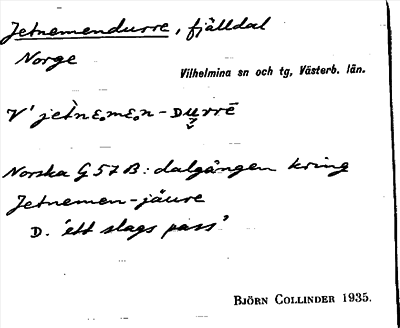 Jetnemendurre, fjälldal
Norge
Vilhelmina sn och tg, Västerb. län.
V' jèt̀nᴇmᴇn-Dṳrrē
Norska G 57 B: dalgången kring
Jetnemen-jäure
D. 'ett slags pass'
Björn Collinder 1935.